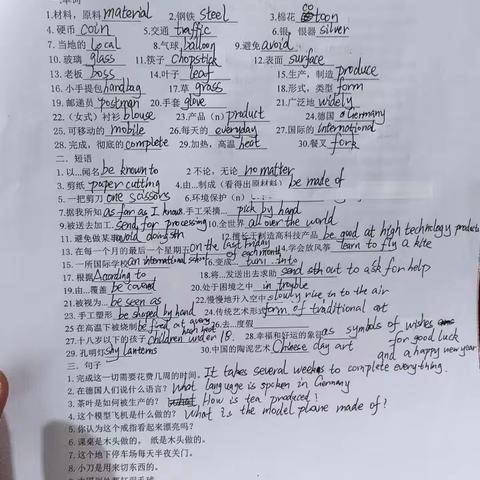 1.材料，原料 material 2.钢铁 steel 3.棉花 cotoon
4.硬币 coin 5.交通 traffic 6.银，银器 silver
7.当地的 local 8.气球 balloon 9.避免 avoid
10.玻璃 glass 11.筷子 chopstick 12.表面 surface
13.老板 boss 14.叶子 leaf 15.生产，制造 produce
16.小手提包 handbag 17.草 grass 18.形式，类型 form
19.邮递员 postman 20.手套 glove 21.广泛地 widely
22.（女式）衬衫 blouse 23.产品（n）product 24.德国 Germany
25.可移动的 mobile 26.每天的 everyday 27.国际的 international
28.完成，彻底的 complete 29.加热，高温 heat 30.餐叉 fork
二．短语
1.以...闻名 be known to 2 不论，无论 no matter
3.剪纸 paper cutting 4.由...制成（看得出原材料） be made of
5.一把剪刀 one scissors 6.环境保护（n）
7.据我所知 as far as I know 8.手工采摘 pick by hand
9.被送去加工 send for processing 10.全世界 all over the world
11.避免做某事 avoid doing sth 12.擅长于制造高科技产品 be good at high technology products
13.在每一个月的最后一个星期五 on the last friday of each month 14.学会放风筝 learn to fly a kite
15.一所国际学校 an international school 16.变成 turn into
17.根据 According to 18.将...发送出去求助 send sth out to ask for help
19.由...覆盖 be covered 20.处于困境之中 in trouble
21.被视为 be seen as 22.慢慢地升入空中 slowly rise in to the air
23.手工塑形 be shaped by hand 24.传统艺术形式 form of traditional art
25 在高温下被烧制 be fired at high heat 26.去...度假
27.十八岁以下的孩子 children under 18. 28.幸福和好运的象征 as symbols of wishes for good luck and a happy new year
29.孔明灯 sky lanterns 30.中国的陶泥艺术 Chinese clay art
三．句子
1.完成这一切需要花费几周的时间。It takes several weeks to complete everything.
2.在德国人们说什么语言？What language is spoken in Germany
3.茶叶是如何被生产的？How is tea produced?
4.这个模型飞机是什么做的？What is the model plane made of?
5.你认为这个戒指看起来漂亮吗？
6.课桌是木头做的。 纸是木头做的。
7.这个地下停车场每天半夜关门。
8.小刀是用来切东西的。